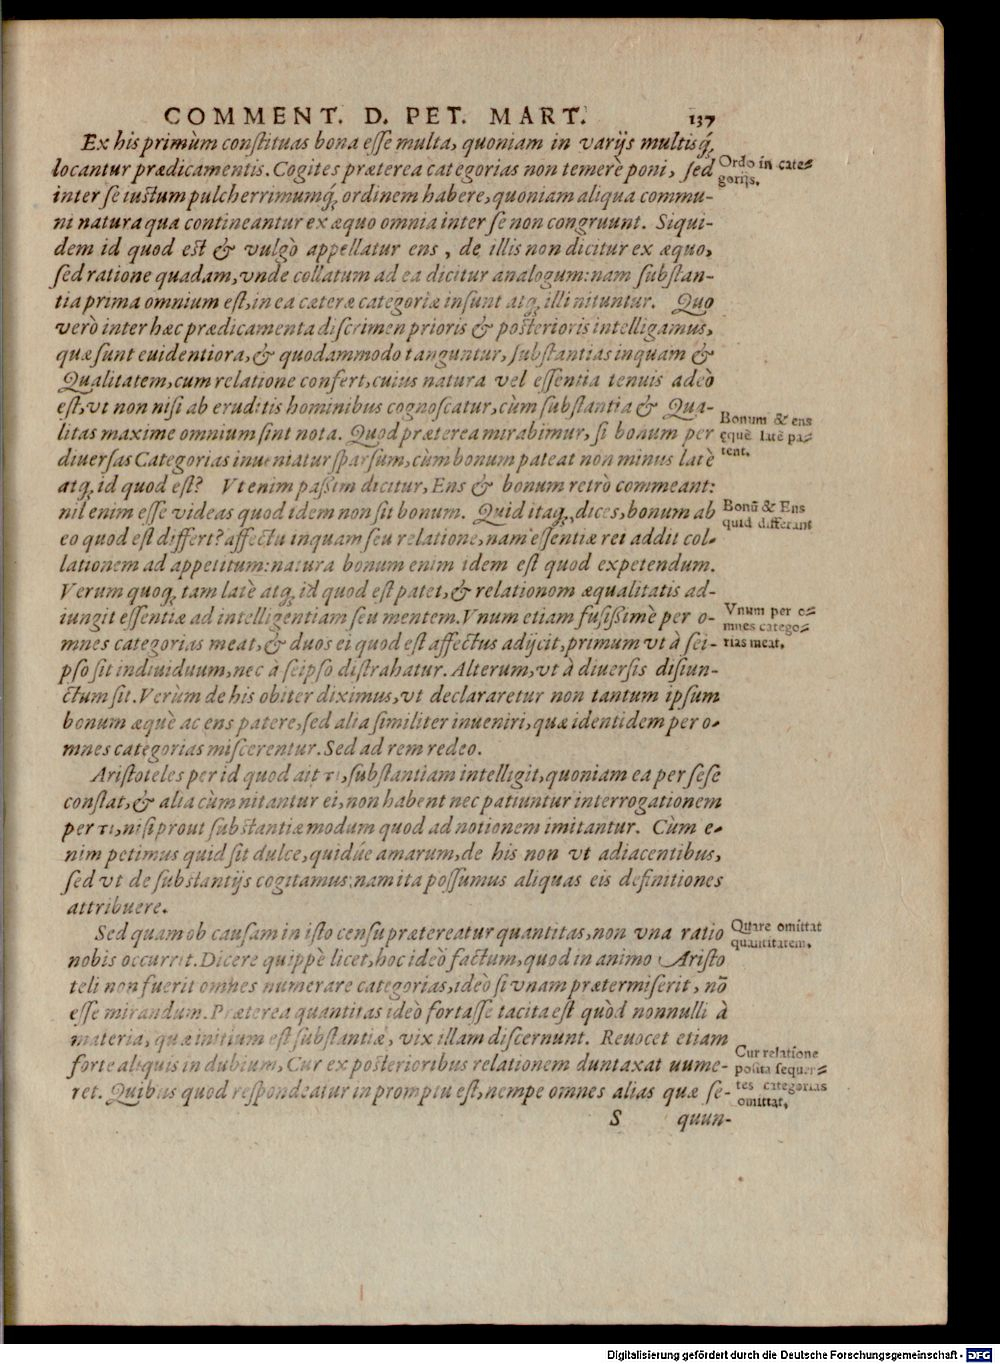 COMMENT. D. PET. MART. 137
Ex his primùm constituas bona esse multa, quoniam in varijs multisq́;
locantur prædicamentis. Cogites præterea categorias non temerè poni, sed
inter se iustum pulcherrimumq́; ordinem habere, quoniam aliqua commu-
ni natura qua contineantur ex æquo omnia inter se non congruunt. Siqui-
dem id quod est & vulgò appellatur ens, de illis non dicitur ex æquo,
sed ratione quadam, vnde collatum ad ea dicitur analogum: nam substan-
tia prima omnium est, in ea cæteræ categoriæ insunt atq; illi nituntur. Quo
verò inter hæc prædicamenta discrimen prioris & posterioris intelligamus,
quæ sunt euidentiora, & quodammodo tanguntur, substantias inquam &
Qualitatem, cum relatione confert, cuius natura vel essentia tenuis adeò
est, vt non nisi ab eruditis hominibus cognoscatur, cùm substantia & Qua-
litas maxime omnium sint nota. Quod præterea mirabimur, si bonum per
diuersas Categorias inueniatur sparsum, cùm bonum pateat non minus latè
atq; id quod est? Vt enim passim dicitur, Ens & bonum retrò commeant:
nil enim esse videas quod idem non sit bonum. Quid itaq;, dices, bonum ab
eo quod est differt? affectu inquam seu relatione, nam essentiæ rei addit col-
lationem ad appetitum: natura bonum enim idem est quod expetendum.
Verum quoq; tam latè atq; id quod est patet, & relationom æqualitatis ad-
iungit essentiæ ad intelligentiam seu mentem. Vnum etiam fusissimè per o-
mnes categorias meat, & duos ei quod est affectus adijcit, primum vt à sei-
pso sit indiuiduum, nec à seipso distrahatur. Alterum, vt à diuersis disiun-
ctum sit. Verùm de his obiter diximus, vt declararetur non tantum ipsum
bonum æquè ac ens patere, sed alia similiter inueniri, quæ identidem per o-
mnes categorias miscerentur. Sed ad rem redeo.
Aristoteles per id quod ait τι, substantiam intelligit, quoniam ea per sese
constat, & alia cùm nitantur ei, non habent nec patiuntur interrogationem
per τι, nisi prout substantiæ modum quod ad notionem imitantur. Cùm e-
nim petimus quid sit dulce, quidúe amarum, de his non vt adiacentibus,
sed vt de substantijs cogitamus: nam ita possumus aliquas eis definitiones
attribuere.
Sed quam ob causam in isto censu prætereatur quantitas, non vna ratio
nobis occurrit. Dicere quippè licet, hoc ideò factum, quod in animo Aristo
teli non fuerit omnes numerare categorias, ideò si vnam prætermiserit, nō
esse mirandum. Præterea quantitas ideò fortasse tacita est quòd nonnulli à
materia, quæ initium est substantiæ, vix illam discernunt. Reuocet etiam
forte aliquis in dubium, Cur ex posterioribus relationem duntaxat uume-
ret. Quibus quod respondeatur in promptu est, nempe omnes alias quæ se-
S quun-
Ordo in cate-
gorijs.
Bonum & ens
ęquè latè pa-
tent.
Bonū & Ens
quid differant
Vnum per o-
mnes catego-
rias meat.
Quare omittat
quantitatem.
Cur relatione
posita sequen-
tes categorias
omittat.
Digitalisierung gefördert durch die Deutsche Forschungsgemeinschaft - DFG